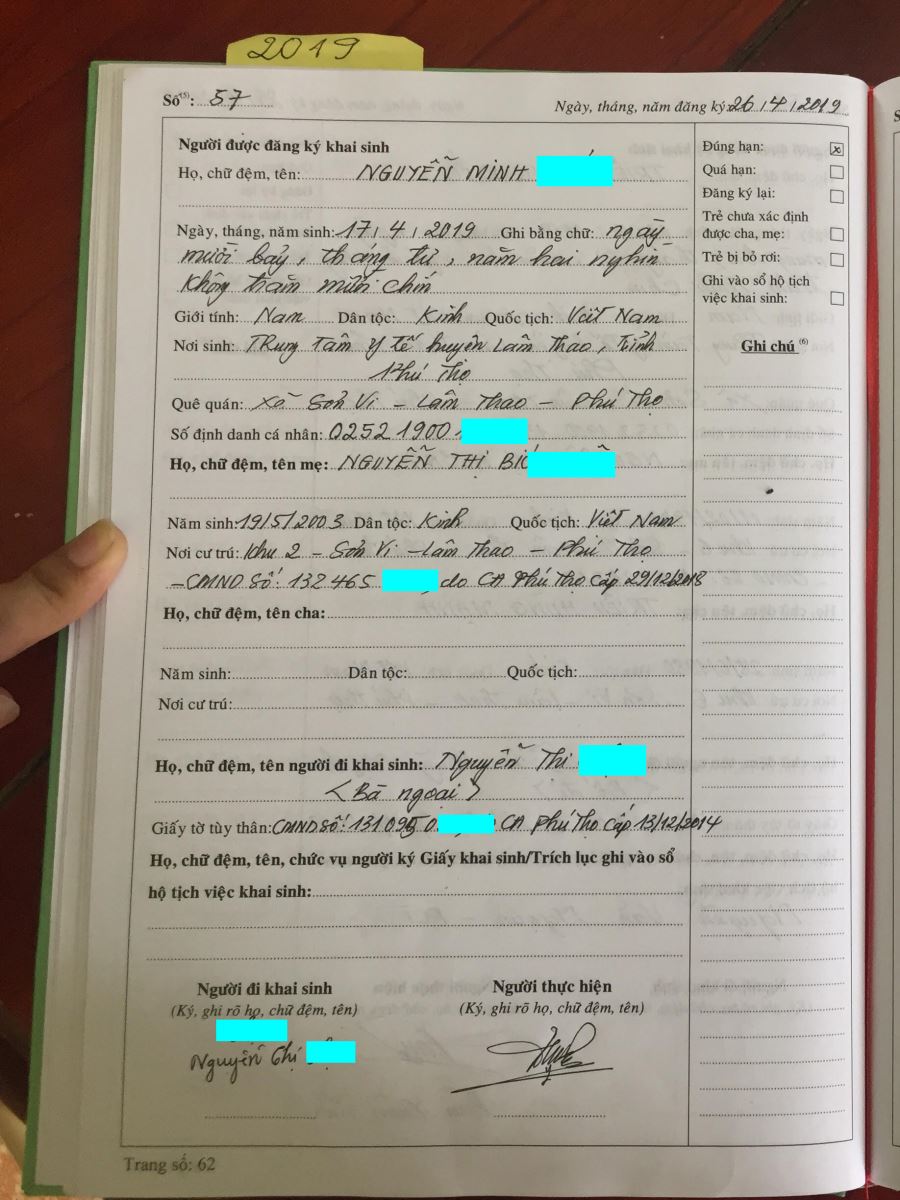 2019
Số(5): 57
Ngày, tháng, năm đăng ký: 26/4/2019
Người được đăng ký khai sinh
Họ, chữ đệm, tên: NGUYỄN MINH
Ngày, tháng, năm sinh: 17/4/2019 Ghi bằng chữ: ngày
mười bảy, tháng tư, năm hai nghìn
không trăm mười chín
Giới tính: Nam Dân tộc: Kinh Quốc tịch: Việt Nam
Nơi sinh: TRung tâm y tế huyện Lâm Thao, Tỉnh
Phú Thọ
Quê quán: Xã Sơn Vi - Lâm Thao - Phú Thọ
Số định danh cá nhân: 02521900
Họ, chữ đệm, tên mẹ: NGUYỄN THỊ
Năm sinh: 19/5/2003 Dân tộc: Kinh Quốc tịch: Việt Nam
Nơi cư trú: Khu 2 - Sơn Vi - Lâm Thao - Phú Thọ
- CMND Số: 132465 do CA Phú Thọ Cấp 29/12/2018
Họ, chữ đệm, tên cha:
Năm sinh: Dân tộc: Quốc tịch:
Nơi cư trú:
Họ, chữ đệm, tên người đi khai sinh: Nguyễn Thị
<Bà ngoại>
Giấy tờ tùy thân: CMND Số: CA Phú Thọ Cấp 13/12/2014
Họ, chữ đệm, tên, chức vụ người ký Giấy khai sinh/Trích lục ghi vào sổ
hộ tịch việc khai sinh:
Người đi khai sinh
(Ký, ghi rõ họ, chữ đệm, tên)
Nguyễn Thị
Người thực hiện
(Ký, ghi rõ họ, chữ đệm, tên)
Đúng hạn: x
Quá hạn:
Đăng ký lại:
Trẻ chưa xác định
được cha, mẹ:
Trẻ bị bỏ rơi:
Ghi vào sổ hộ tịch
việc khai sinh:
Ghi chú (6)
Trang số: 62